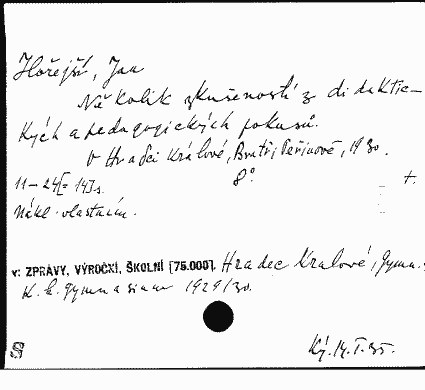 Hořejší, Jan
Několik zkušeností z didaktic-
kých a pedagogických pokusů.
V Hradci Králové, Bratři Peřinové, 1930.
11-24[=14]s. 8° +.
Nákl. vlastním.
v: ZPRÁVY, VÝROČNÍ, ŠKOLNÍ [75.000], Hradec Králové, Gymn.
K. k. gymnasium 1929/30.